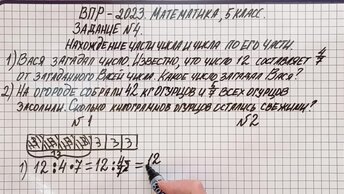 ВПР - 2023. МАТЕМАТИКА, 5 КЛАСС.
ЗАДАНИЕ №4.
НАХОЖДЕНИЕ ЧАСТИ ЧИСЛА И ЧИСЛА ПО ЕГО ЧАСТИ.
1) ВАСЯ ЗАГАДАЛ ЧИСЛО. ИЗВЕСТНО, ЧТО ЧИСЛО 12 СОСТАВЛЯЕТ 4/7
ОТ ЗАГАДАННОГО ВАСЕЙ ЧИСЛА. КАКОЕ ЧИСЛО ЗАГАДАЛ ВАСЯ?
2) НА ОГОРОДЕ СОБРАЛИ 42 КГ ОГУРЦОВ И /7 ВСЕХ ОГУРЦОВ
ЗАСОЛИЛИ. СКОЛЬКО КИЛОГРАММОВ ОГУРЦОВ ОСТАЛИСЬ СВЕЖИМИ?
№1 №2
3 3 3
12
1) 12 : 4 · 7 = 12 : 4/7 = 12